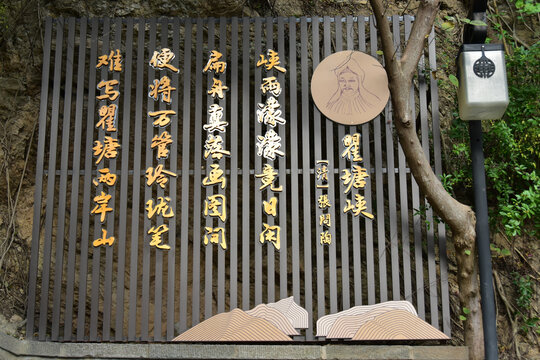 瞿塘峡
【清】张問陶
峡雨濛濛竟日闲
扁舟真落画图间
便将万管玲珑笔
难写瞿塘两岸山